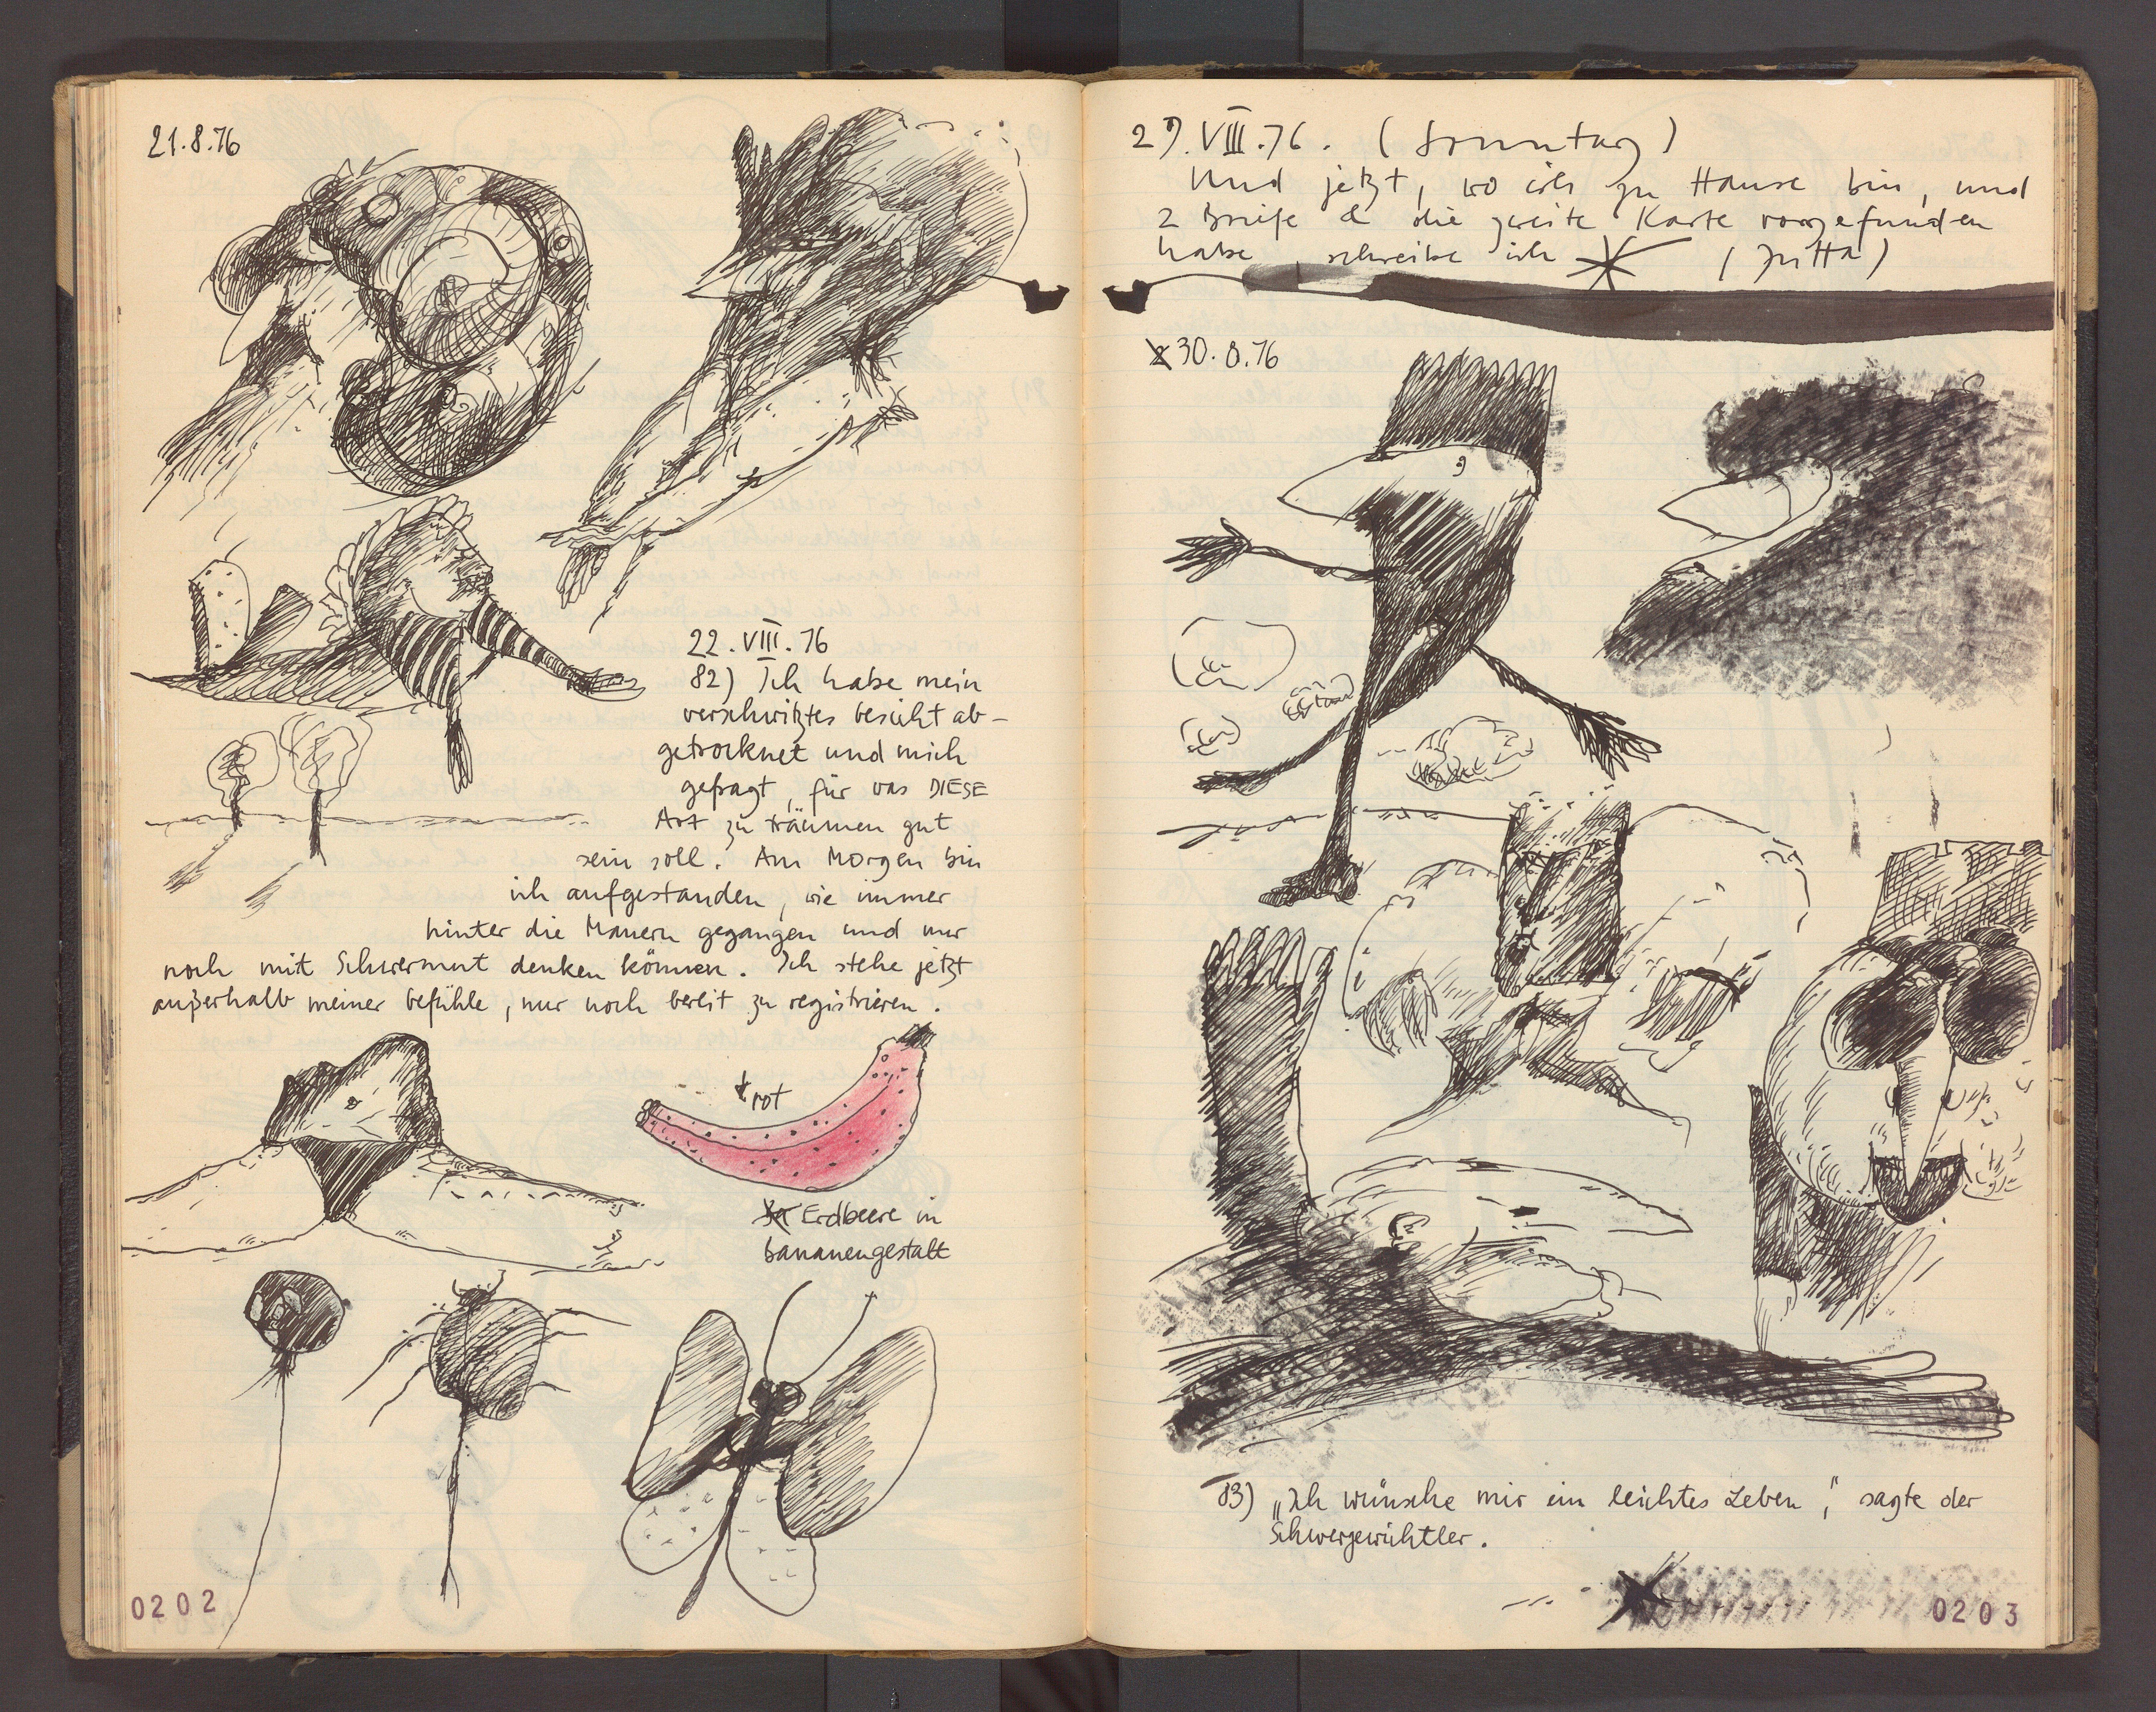 21.8.76
22.VIII.76
82) Ich habe mein
verschwitztes Gesicht ab-
getrocknet und mich
gefragt, für was DIESE
Art zu träumen gut
sein soll. Am Morgen bin
ich aufgestanden, wie immer
hinter die Mauern gegangen und nur
noch mit Schwermut denken können. Ich stehe jetzt
außerhalb meiner Gefühle, nur noch bereit zu registrieren.
rot
Erdbeere in
bananengestalt
0202
29.VIII.76. (Sonntag)
Und jetzt, wo ich zu Hause bin, und
2 Briefe & die zweite Karte vorgefunden
habe, schreibe ich (Jutta)
30.8.76
83) „Ich wünsche mir ein leichtes Leben," sagte der
Schwergewichtler.
0203